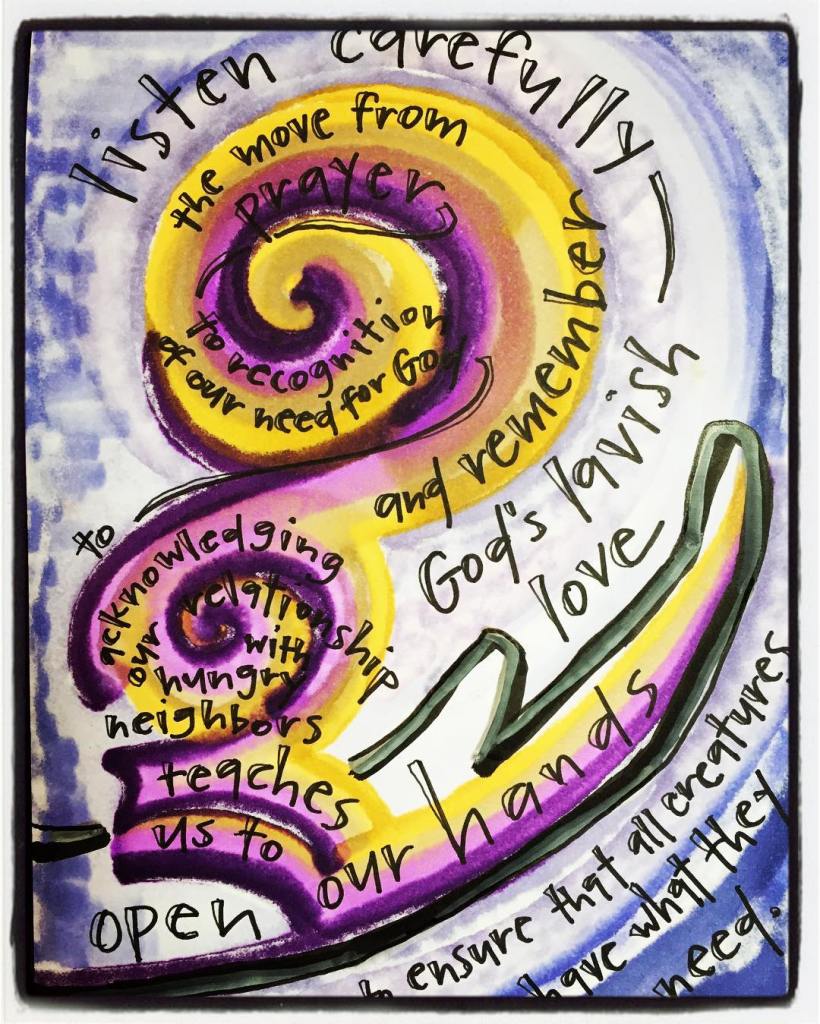 listen carefully—
the move from
prayer
to recognition
of our need for God
to
acknowledging
our relationship
with
hungry
neighbors
teaches
us to
open
our hands
and remember
God's lavish
love
to ensure that all creatures
have what they
need.